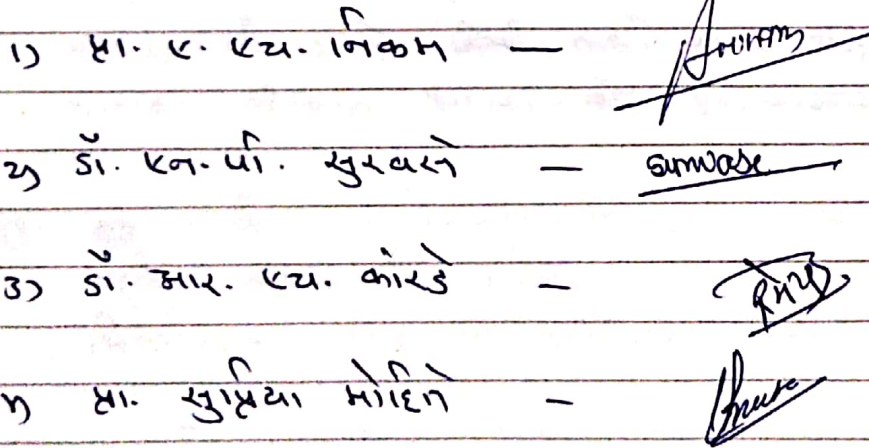 १) प्रा. ए. एच. निकम –
२) डॉ. एन. पी. सुरवसे – Surwase
३) डॉ. आर. एच. कोरडे –
४) प्रा. सुप्रिया मोहिते –